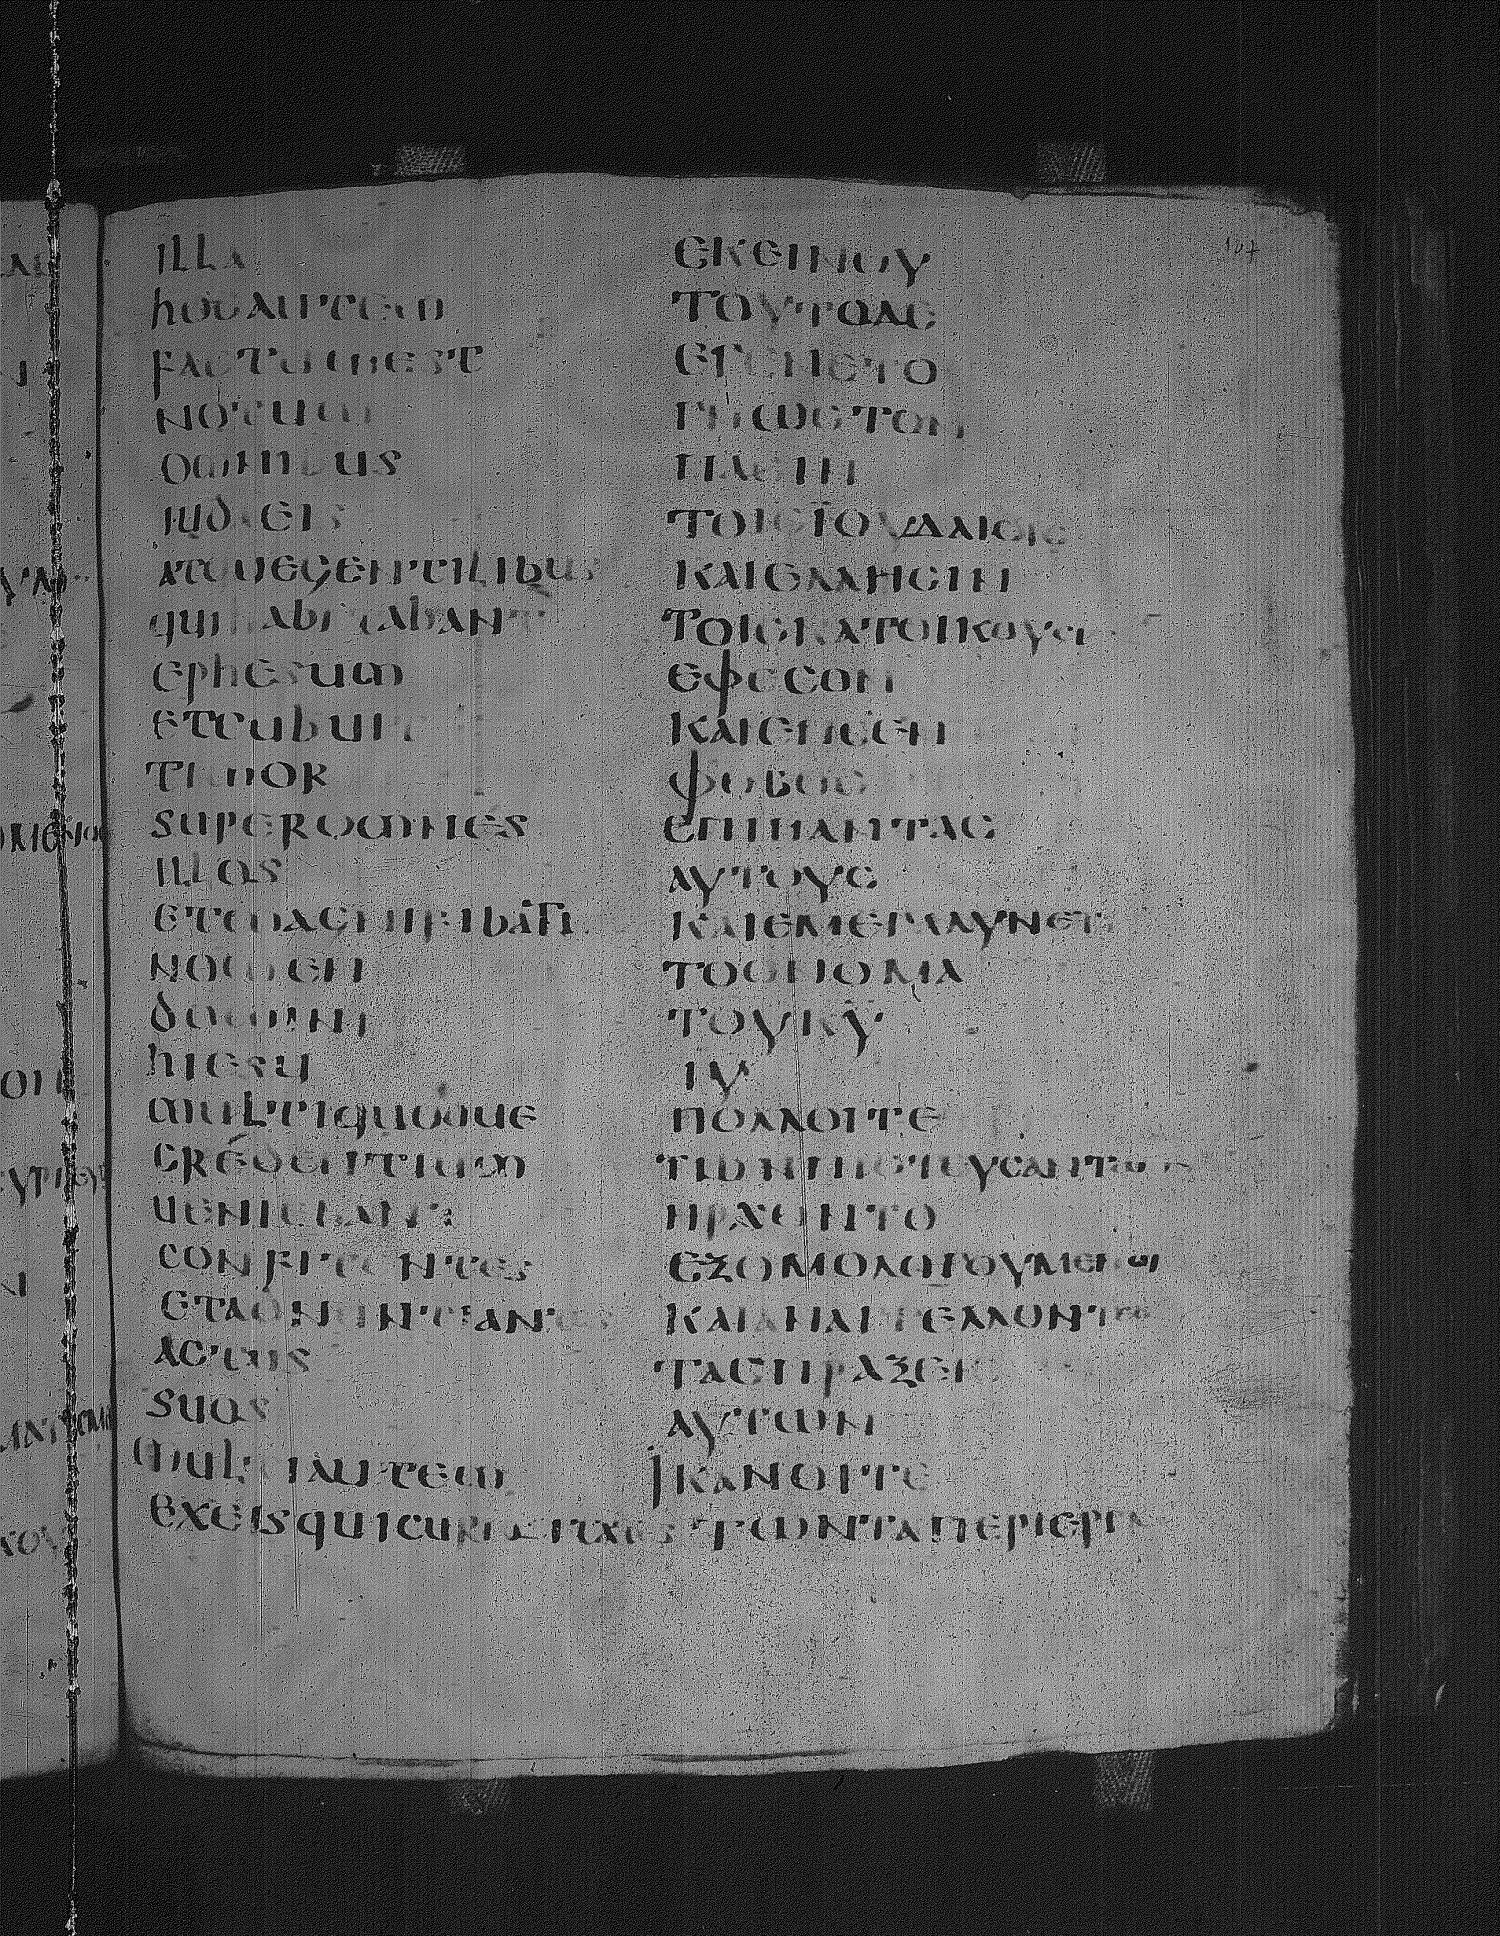 illa
hocautem
factumest
notum
omnibus
iudaeis
atquegentilibus
quihabitabant
ephesum
etcubuit
timor
superomnes
illos
etmagnificabat̅
nomen
domini
hiesu
multiquoque
credentium
veniebant
confitentes
etadnuntiantes
actus
suos
multiautem
exeisquicuriositates
107
ΕΚΕΙΝΟΥ
ΤΟΥΤΟΔΕ
ΕΓΕΝΕΤΟ
ΓΝΩΣΤΟΝ
ΠΑΣΙΝ
ΤΟΙΣΪΟΥΔΑΙΟΙΣ
ΚΑΙΕΛΛΗΣΙΝ
ΤΟΙΣΚΑΤΟΙΚΟΥΣΙΝ
ΕΦΕΣΟΝ
ΚΑΙΕΠΕΣΕΝ
ΦΟΒΟΣ
ΕΠΙΠΑΝΤΑΣ
ΑΥΤΟΥΣ
ΚΑΙΕΜΕΓΑΛΥΝΕΤΟ
ΤΟΟΝΟΜΑ
ΤΟΥΚ̅Υ̅
Ι̅Υ̅
ΠΟΛΛΟΙΤΕ
ΤΩΝΠΙΣΤΕΥΣΑΝΤΩΝ
ΗΡΧΟΝΤΟ
ΕΞΟΜΟΛΟΓΟΥΜΕΝΟΙ
ΚΑΙΑΝΑΓΓΕΛΛΟΝΤΕΣ
ΤΑΣΠΡΑΞΕΙΣ
ΑΥΤΩΝ
ΙΚΑΝΟΙΤΕ
ΤΩΝΤΑΠΕΡΙΕΡΓΑ